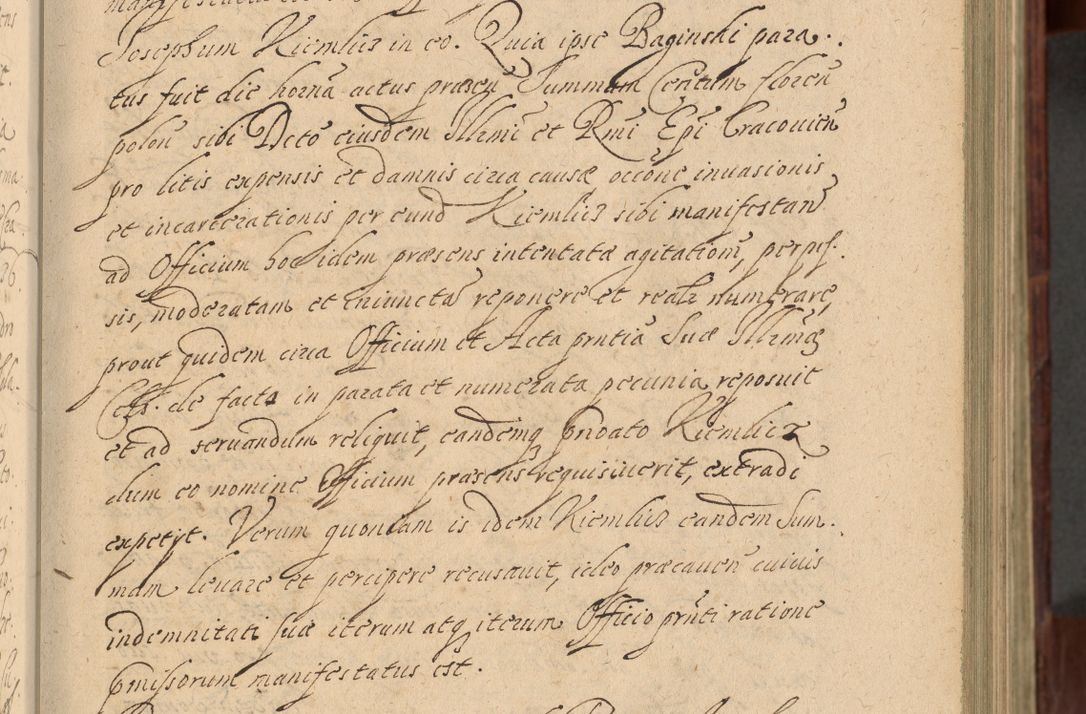 Josephum Kiemlicz in eo. Quia ipse Baginski para.
tus fuit die hornã actus præsẽn Summam Centum florẽn
polon̄ sibi Dcto eiusdem Illrmi et Rmi Epi Cracouien̄
pro litis expensis et damnis circa causæ occõne inuasionis
et incarcerationis per eund Kiemlicz sibi manifestan̄
ad Officium hoc idem præsens intentatæ agitation̄, perpes.
sis, moderatam et iniunctã reponere et realr numerare,
prout quidem circa Officium et Acta prntia Suæ Illrmæ
Cels. de facto in parata et numerata pecunia reposuit
et ad seruandum reliquit, eandemq prdato Kiemlicz
dum eo nomine Officium præsens requisiuerit, extradi
expetyt. Verum quoniam is idem Kiemlicz eandem Sum.
mam leuare et percipere recusauit, ideo præcauen̄ cuiuis
indemnitati suæ iterum atq iterum Officio prn̄ti ratione
pmissorum manifestatus est.